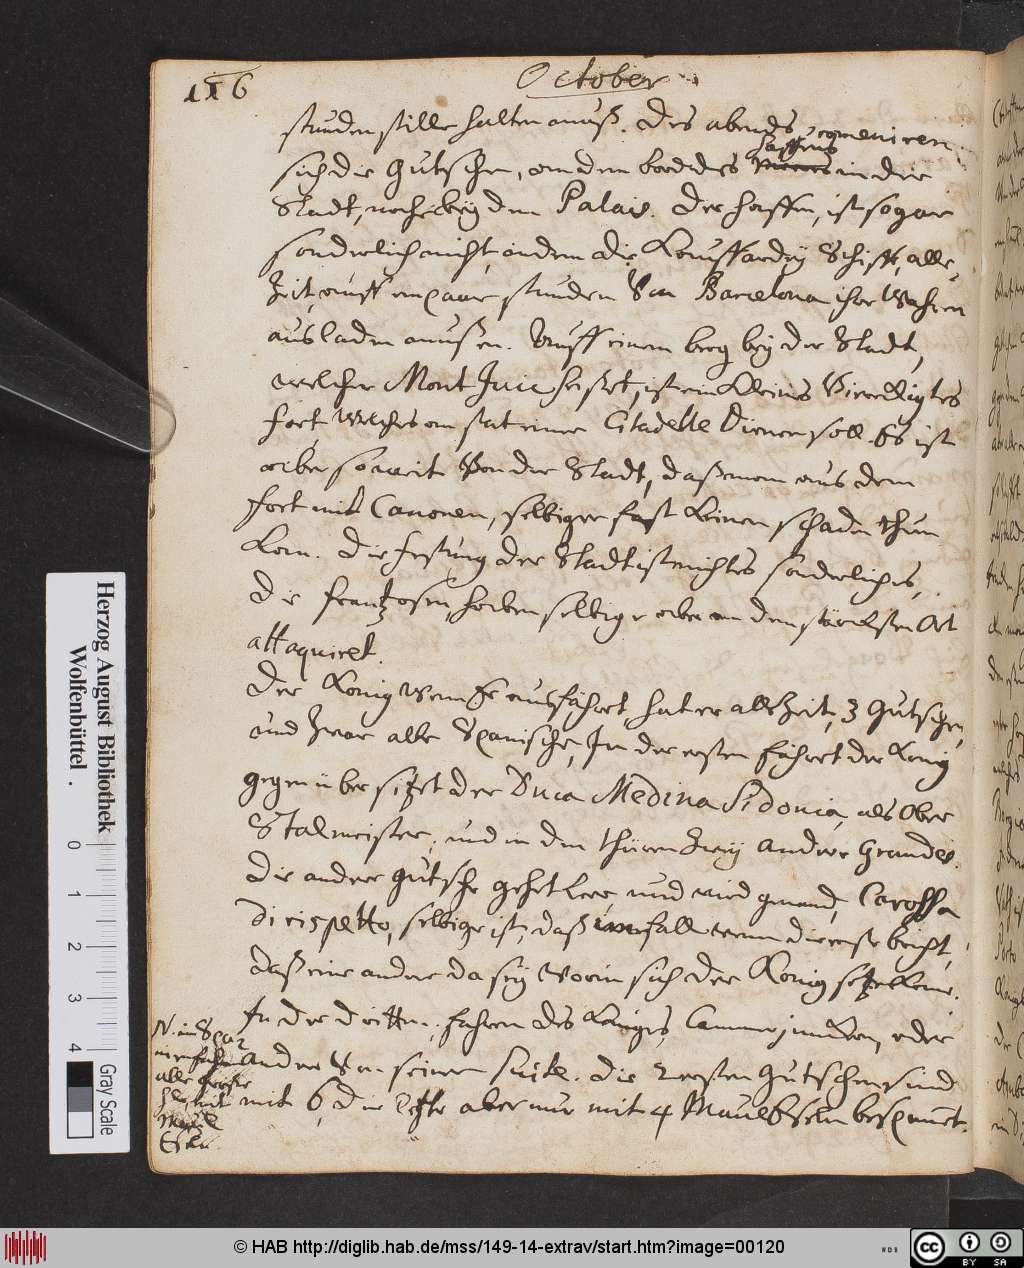 116
October
stunden stille halten muß. Des abends conveniren
sich die Gutschen, an dem bord des Haffens in der
Stadt, nahe bey dem Palais. Der haffen, ist sogar
sonderlich nicht, indem die Kauffardey Schiffe, alle-
zeit auff ein paar stunden Von Barcelona ihre Wahren
ausladen mußen. Auff einem berg bey der Stadt,
welcher Mont Juic heißet, ist ein kleines Viereckigtes
fort, welches an stat einer Citadelle Dienen soll. Es ist
aber so weit Von der Stadt, daß man aus dem
fort mit Canonen, selbiger fast keinen schaden thun
kan. Die festung der Stadt ist nichts sonderliches,
Die frantzosen, haben selbige aber an dem stärcksten Ort
attaquiret.
Der König wenn Er ausfährt, hat er allezeit, 3 Gutschen,
und zwar alle Spanische, In der ersten fähret der König
gegen über sitzet der Duca Medina Sidonia, als Ober
Stalmeister, und in den thüren zwey andere Grandes.
Die andere Gutsche gehet leer und wird genand, Carossa
di rispetto, selbige ist, daß im fall wenn die erste bricht,
daß eine andere da sey worin sich der König setzen könne.
In der dritten, fahren des Königes, Cammerjunkern, oder
andere Von seiner Suite. Die 2 ersten Gutschen sind
mit 6, die letzte aber nur mit 4 Maul Eseln bespannet.
N. in Spa
nien fahren
alle große
Herzog August Bibliothek
Wolfenbüttel
0 1 2 3 4
Gray Scale
© HAB http://diglib.hab.de/mss/149-14-extrav/start.htm?image=00120
WDB
cc
BY SA